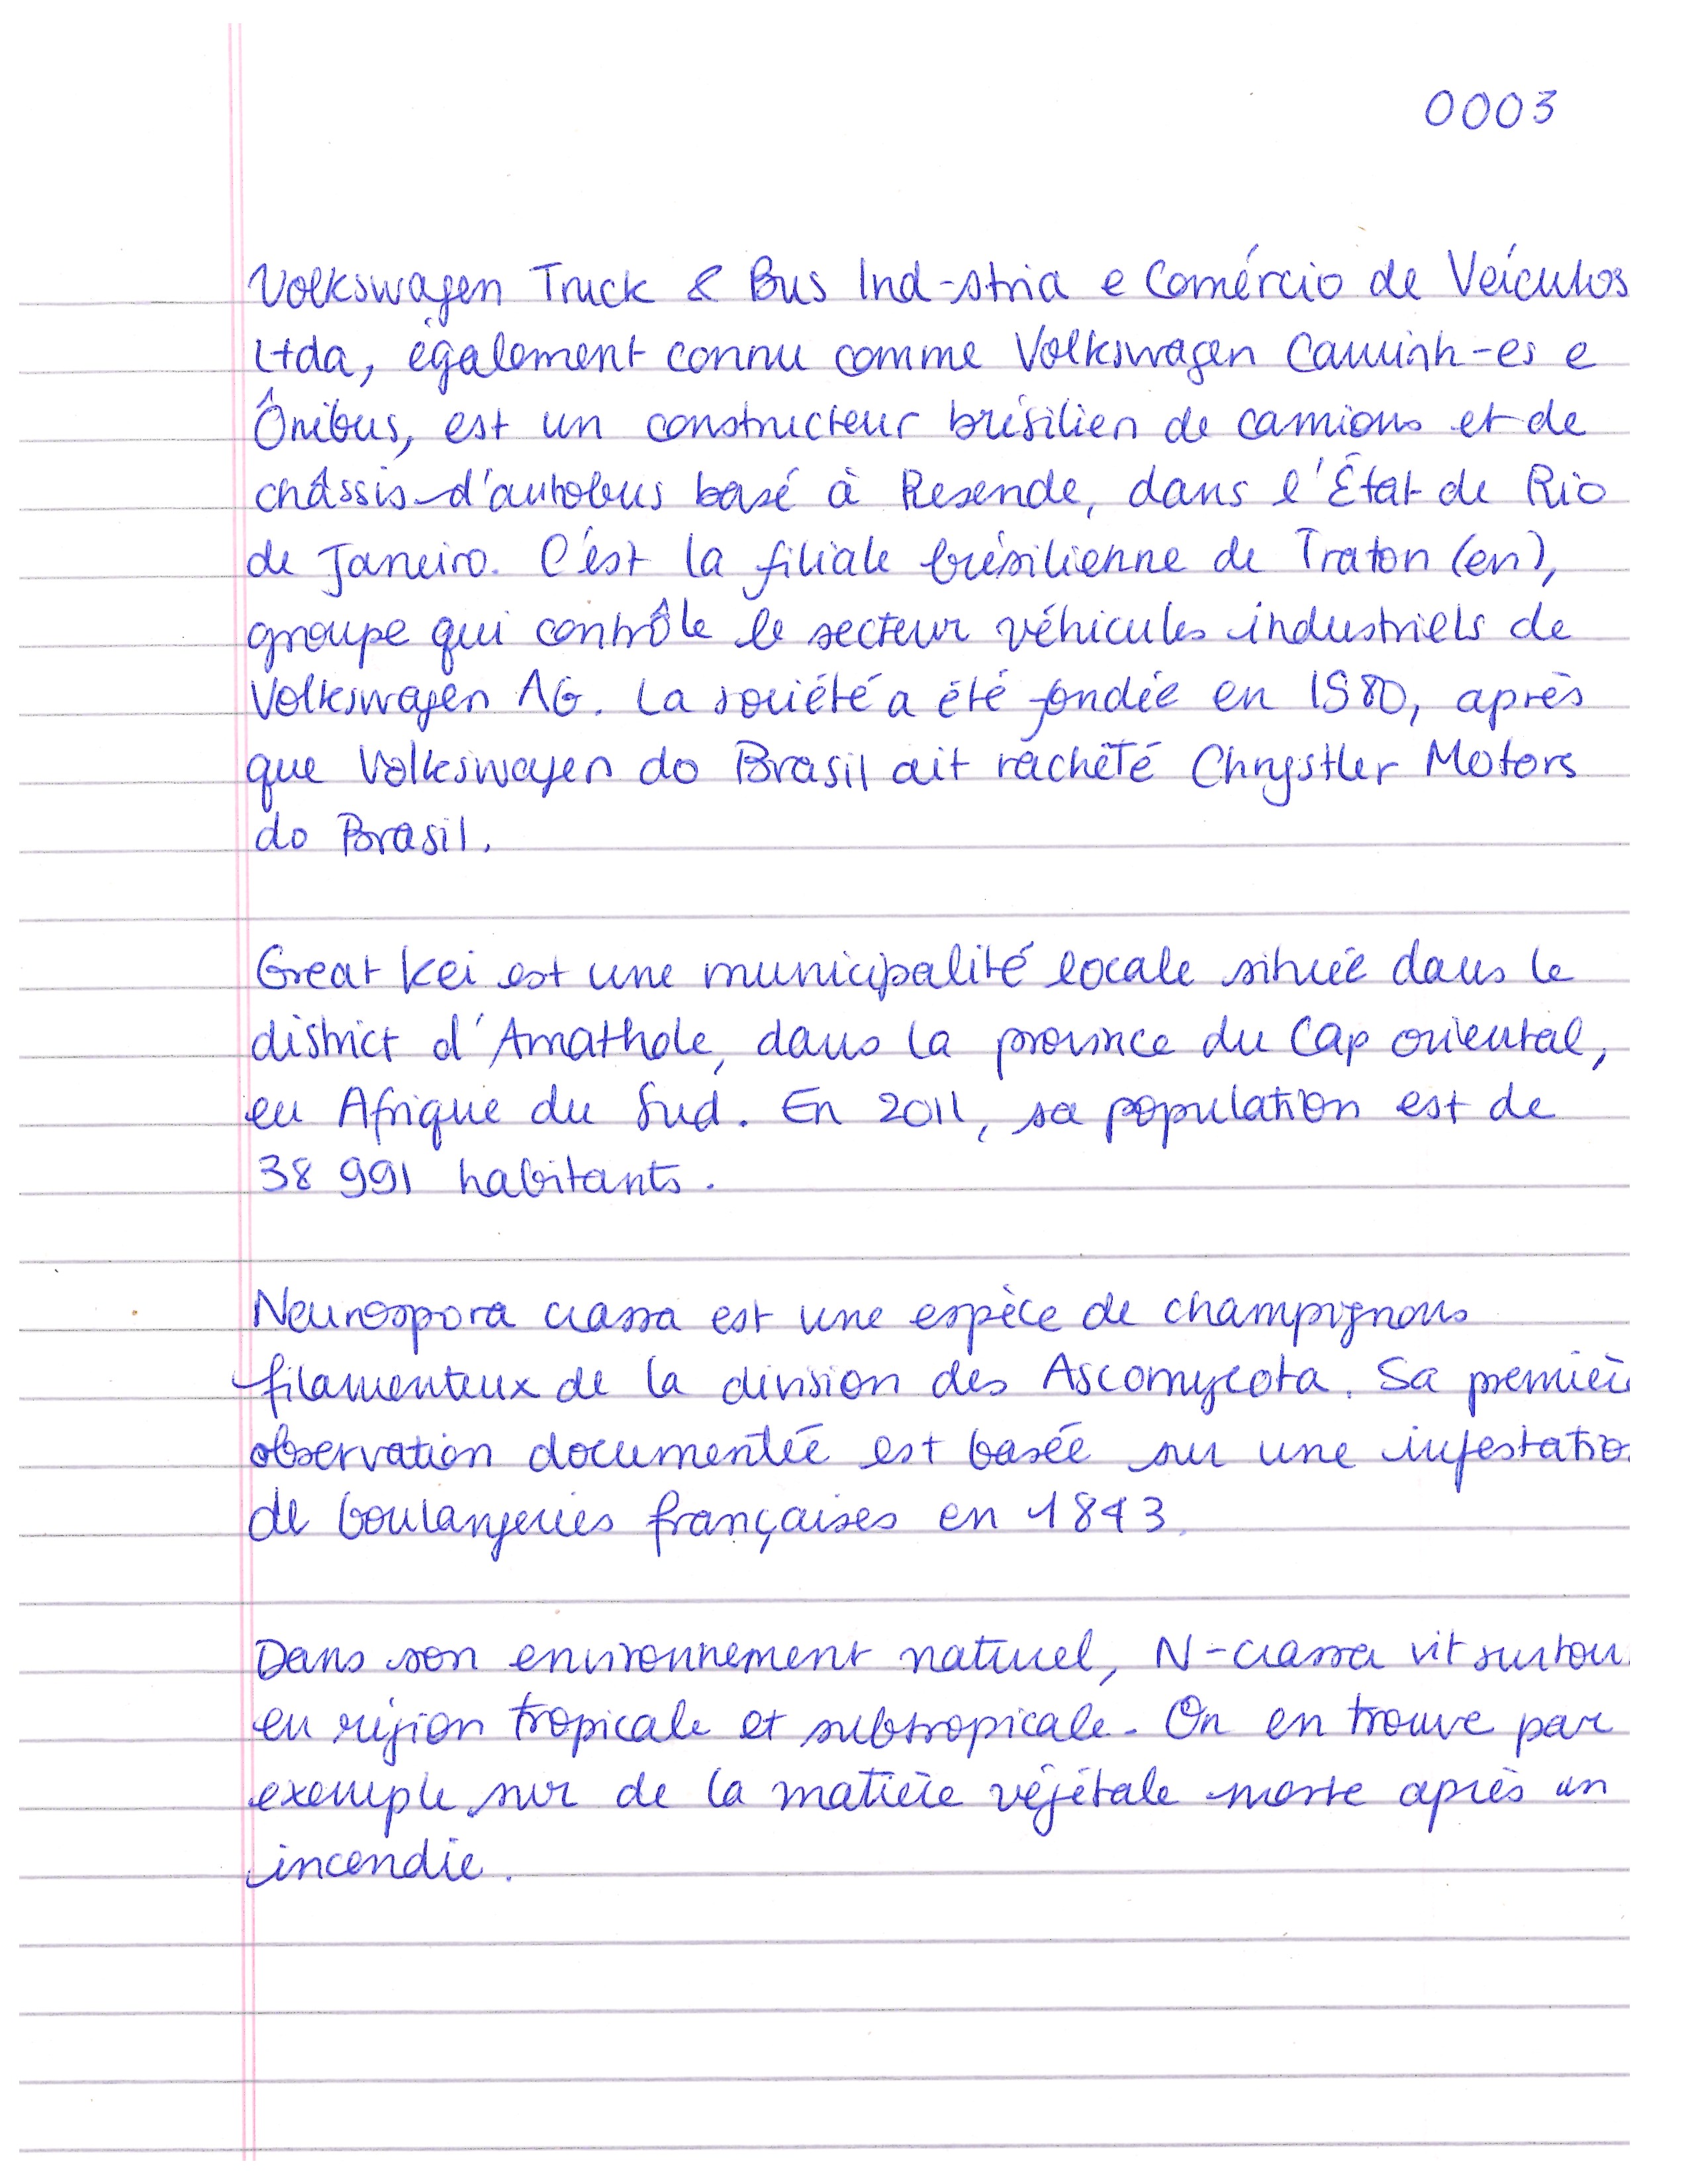 0003
Volkswagen Truck & Bus Ind-stria e Comércio de Veículos
Ltda, également connu comme Volkswagen Caminh-es e
Ônibus, est un constructeur brésilien de camions et de
châssis d'autobus basé à Resende, dans l'État de Rio
de Janeiro. C'est la filiale brésilienne de Traton (en),
groupe qui contrôle le secteur véhicules industriels de
Volkswagen AG. La société a été fondée en 1980, après
que Volkswagen do Brasil ait racheté Chrystler Motors
do Brasil.
Great Kei est une municipalité locale située dans le
district d'Amathole, dans la province du Cap oriental,
en Afrique du Sud. En 2011, sa population est de
38 991 habitants.
Neurospora crassa est une espèce de champignons
filamenteux de la division des Ascomycota. Sa premièr
observation documentée est basée sur une infestatio
de boulangeries françaises en 1843.
Dans son environnement naturel, N-crassa vit surtou
en région tropicale et subtropicale. On en trouve par
exemple sur de la matière végétale morte après un
incendie.